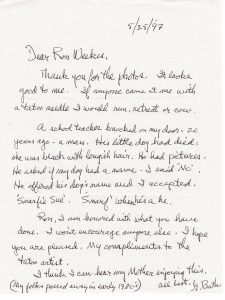 5/25/97
Dear Ron Weekes,
Thank you for the photos. It looks
good to me. If anyone came at me with
a tatoo needle I would run, retreat or cow.
A school teacher knocked on my door - 20
years ago - a man. His little dog had died;
she was black with longish hair. He had pictures.
He asked if my dog had a name - I said "No".
He offered his dog's name and I accepted.
"Snarf". when he's a he.
Ron, I am honored with what you have
done. I won't encourage anyone else. I hope
you are pleased. My compliments to the
tatoo artist.
I think I can hear my Mother enjoying this.
(My folks passed away in early 1980's)
all best,